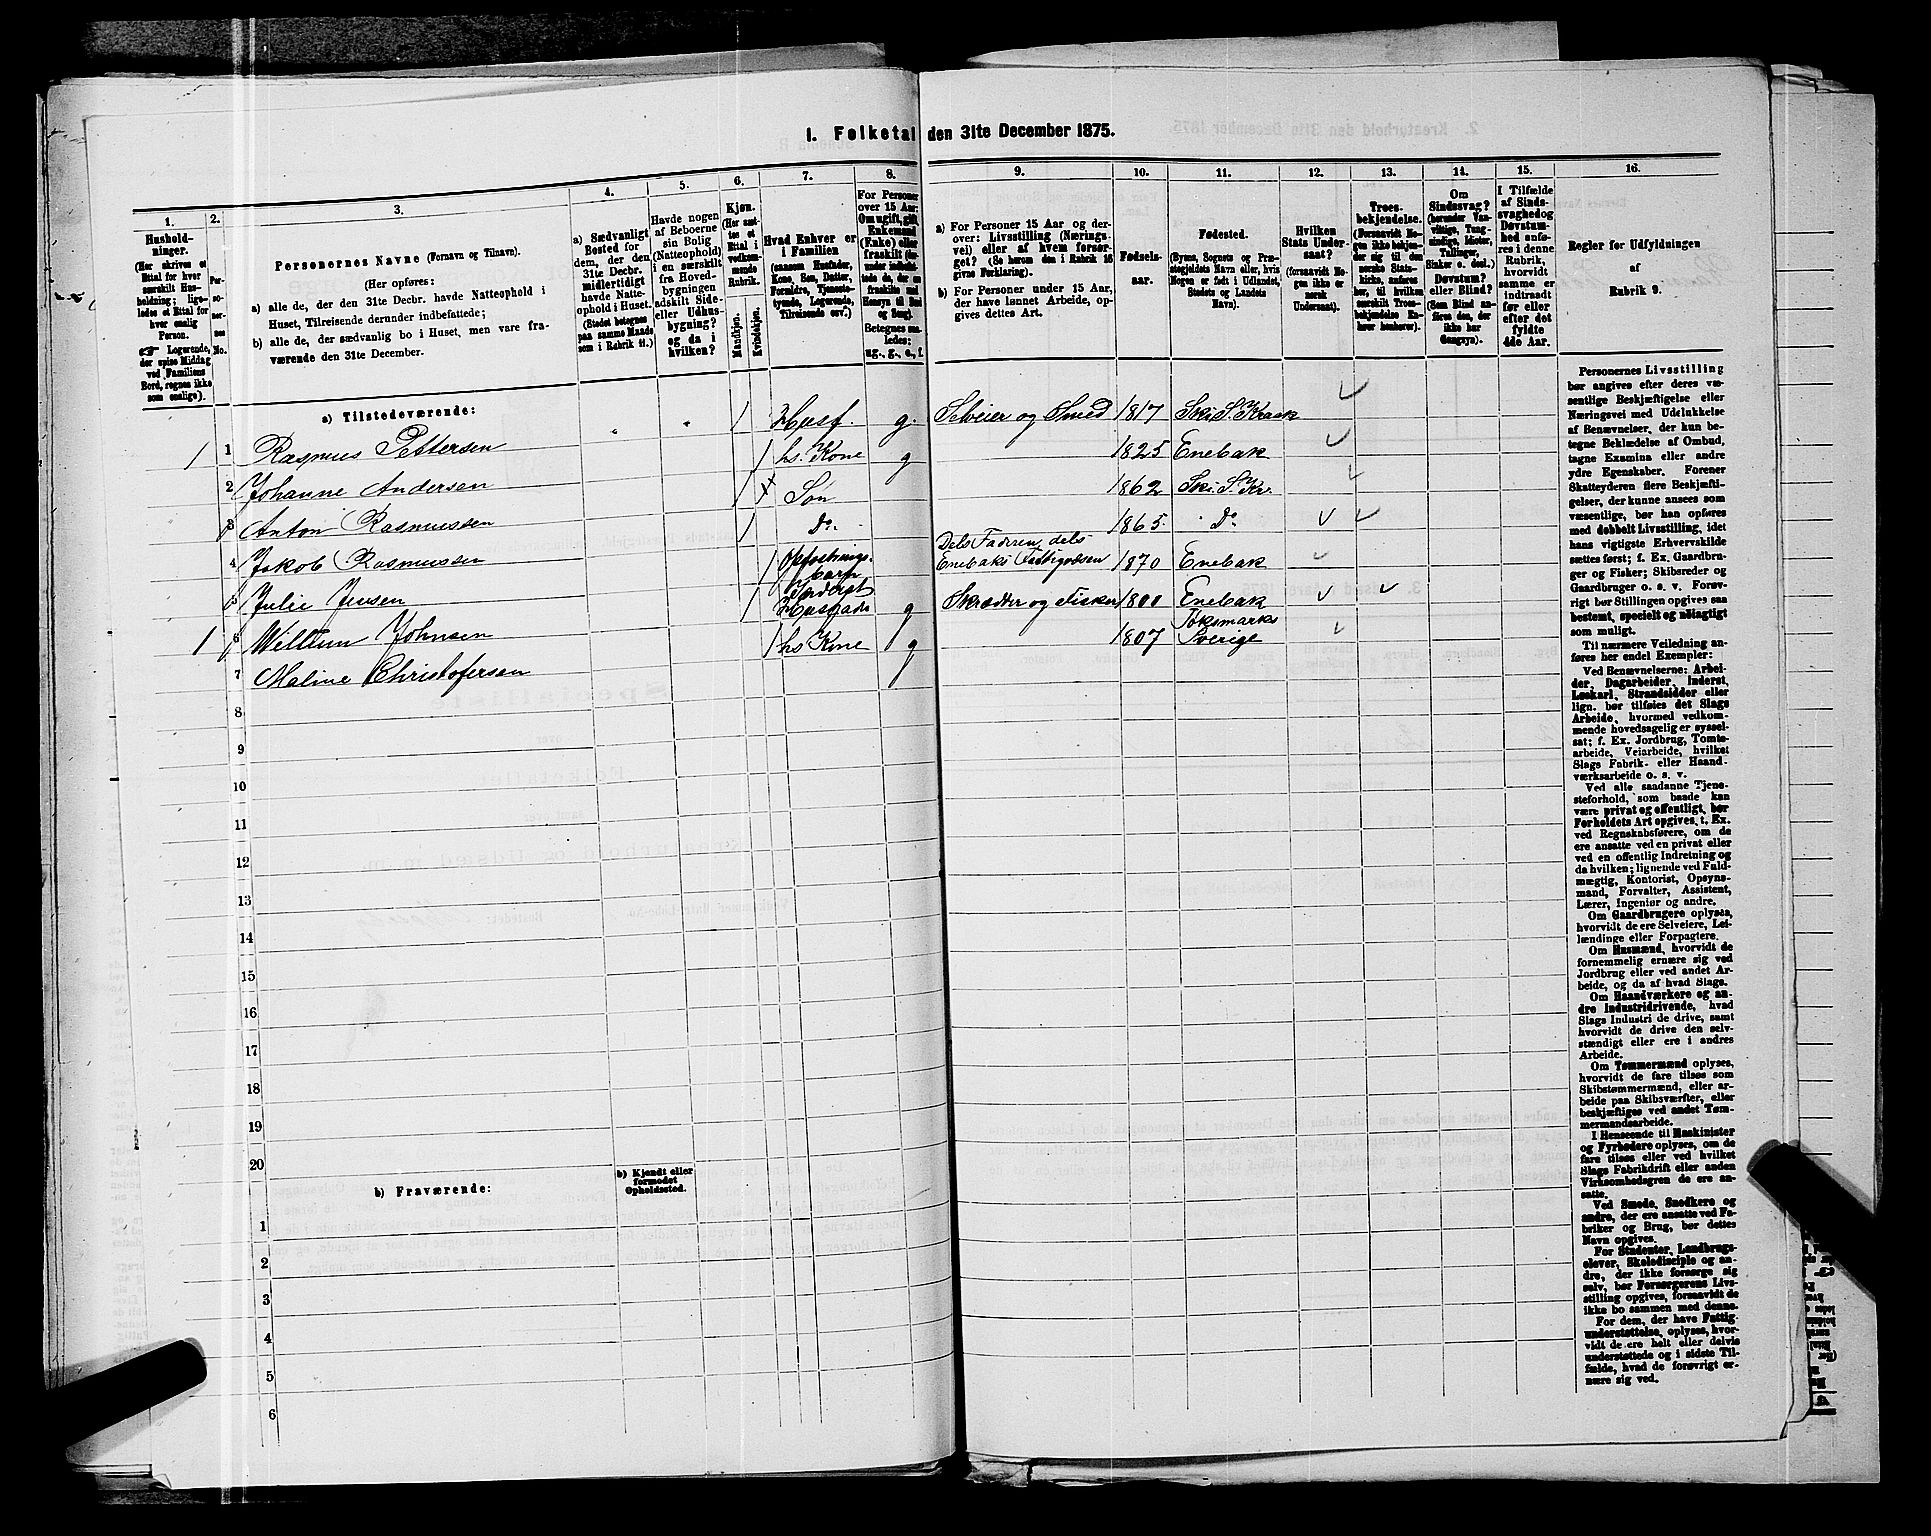 1. Folketal den 31te December 1875.
1.
Hushold-
ninger.
(Her skrives et
Ettal for hver
særskilt Hus-
holdning; lige-
ledes et Ettal for
hver enslig
Person.
Logerende,
der spise Middag
ved Familiens
Bord, regnes ikke
som enslige).
2.
Per-
so-
ner-
nes
No.
3.
Personernes Navne (Fornavn og Tilnavn).
(Her opføres:
a) alle de, der den 31te Decbr. havde Natteophold i
Huset, Tilreisende derunder indbefattede;
b) alle de, der sædvanlig bo i Huset, men vare fra-
værende den 31te December.
4.
a) Sædvanligt
Bosted for
dem, der den
31te Decbr.
midlertidigt
havde Natte-
ophold i Huset.
(Stedet betegnes
paa samme Maade
som i Rubrik 11.)
5.
Havde nogen
af Beboerne
sin Bolig
(Natteophold)
i en særskilt
fra Hoved-
bygningen
adskilt Side-
eller Udhus-
bygning?
og da i
hvilken?
6.
Kjøn.
(Her sæt-
tes et
Ettal i
vedkom-
mende
Rubrik.
Mandkjøn.
Kvindekjøn.
7.
Hvad Enhver er
i Familien
(saasom Husfader,
Kone, Søn, Datter,
Forældre, Tjeneste-
tyende, Logerende,
Tilreisende osv.)
8.
For Personer
over 15 Aar:
Om ugift, gift,
Enkemand
(Enke) eller
fraskilt
Betegnes saa-
ledes:
ug., g., e., f.
9.
a) For Personer 15 Aar og der-
over: Livsstilling (Nærings-
vei) eller af hvem forsør-
get? (Se herom den i Rubrik 16
givne Forklaring).
b) For Personer under 15 Aar,
der have lønnet Arbeide, op-
gives dettes Art.
10.
Fødsels-
aar.
11.
Fødested.
(Byens, Sognets og Præ-
stegjeldets Navn eller, hvis
Nogen er født i Udlandet,
Stedets og Landets
Navn).
12.
Hvilken
Stats Under-
saat?
(forsaavidt No-
gen ikke er
norsk
Undersaat).
13.
Troes-
bekjendelse.
(Forsaavidt No-
gen ikke bekjen-
der sig til den
norske Stats-
kirke, anføres
her, til hvilken
særskilt Troes-
bekjendelse En-
hver henhører).
14.
Om
Sindssvag?
(herunder Van-
vittige, Tung-
sindige, Idioter,
Tullinger,
Sinker o. desl.)
Døvstum?
eller Blind?
(Som Blind an-
føres den, der
ikke har
Gangsyn).
15.
I Tilfælde
af Sinds-
svaghed og
Døvstum-
hed anfø-
res i denne
Rubrik,
hvorvidt
samme er
indtraadt
før eller
efter det
fyldte
4de Aar.
16.
Regler for Udfyldningen
af
Rubrik 9.
a) Tilstedeværende:
1 1 Rasmus Pettersen 1 Husf. g. Selveier og Smed 1817 Ski S. Kraak
2 Johanne Andersen 1 hs. Kone g 1825 Enebak
3 Anton Rasmussen 1 Søn 1862 Ski. S. Kr.
4 Jakob Rasmussen 1 Do. 1865. Do.
5 Julie Jensen 1 Opfostrings-
barn
Dels Faderen, dels
Enebaks Fattigvæsen 1870 Enebak
1 6 Willum Johnsen 1 Inderst
Husfader g Skrædder og Fisker 1800 Enebak
7 Maline Christofersen 1 hs Kone g 1807 Töksmarks
Sverige
8
9
10
11
12
13
14
15
16
17
18
19
20
b) Fraværende:
b) Kjendt eller
formodet
Opholdssted.
1
2
3
4
5
6
Personernes Livsstilling
bør angives efter deres væ-
sentlige Beskjæftigelse eller
Næringsvei med Udelukkelse
af Benævnelser, der kun be-
tegne Beklædelse af Ombud,
tagne Examina eller andre
ydre Egenskaber. Forener
Skatteyderen flere Beskjæfti-
gelser, der kunne ansees som
væsentlige, bør han opføres
med dobbelt Livsstilling, idet
hans vigtigste Erhvervskilde
sættes først; f. Ex. Gaardbru-
ger og Fisker; Skibsreder og
Gaardbruger o. s. v. Forøv-
rigt bør Stillingen opgives saa
bestemt, specielt og nøiagtigt
som muligt.
Til nærmere Veiledning an-
føres her endel Exempler:
Ved Benævnelserne: Arbei-
der, Dagarbeider, Inderst,
Løskarl, Strandsidder eller
lign. bør tilføies det Slags
Arbeide, hvormed vedkom-
mende hovedsagelig er syssel-
sat; f. Ex. Jordbrug, Tomte-
arbeide, Veiarbeide, hvilket
Slags Fabrik- eller Haand-
værksarbeide o. s. v.
Ved alle saadanne Tjene-
steforhold, som baade kan
være privat og offentligt, bør
Forholdets Art opgives, t. Ex.
ved Regnskabsførere, om de
ere ansatte ved en privat eller
ved en offentlig Indretning og
da hvilken; lignende ved Fuld-
mægtig, Kontorist, Opsyns-
mand, Forvalter, Assistent,
Lærer, Ingeniør og andre.
Om Gaardbrugere oplyses,
hvorvidt de ere Selveiere, Lei-
lændinge eller Forpagtere.
Om Husmænd, hvorvidt de
fornemmelig ernære sig ved
Jordbrug eller ved andet Ar-
beide, og da af hvad Slags.
Om Haandværkere og an-
dre Industridrivende, hvad
Slags Industri de drive, samt
hvorvidt de drive den selv-
stændigt eller ere i andres
Arbeide.
Om Tømmermænd oplyses,
hvorvidt de fare tilsøs som
Skibstømmermænd, eller ar-
beide paa Skibsværfter, eller
beskjæftiges ved andet Tøm-
mermandsarbeide.
I Henseende til Maskinister
og Fyrbødere oplyses, om de
fare tilsøs eller ved hvilket
Slags Fabrikdrift eller anden
Virksomhedsgren de ere an-
satte.
Ved Smede, Snedkere og
andre, der ere ansatte ved Fa-
briker og Brug, bør dettes
Navn opgives.
For Studenter, Landbrugs-
elever, Skoledisciple og an-
dre, der ikke forsørge sig
selv, bør Forsørgerens Livs-
stilling opgives, forsaavidt de
ikke bo sammen med denne.
For dem, der have Fattig-
understøttelse, oplyses, hvor-
vidt de ere helt eller delvis
understøttede og i sidste Til-
fælde, hvad de forøvrigt er-
nære sig ved.